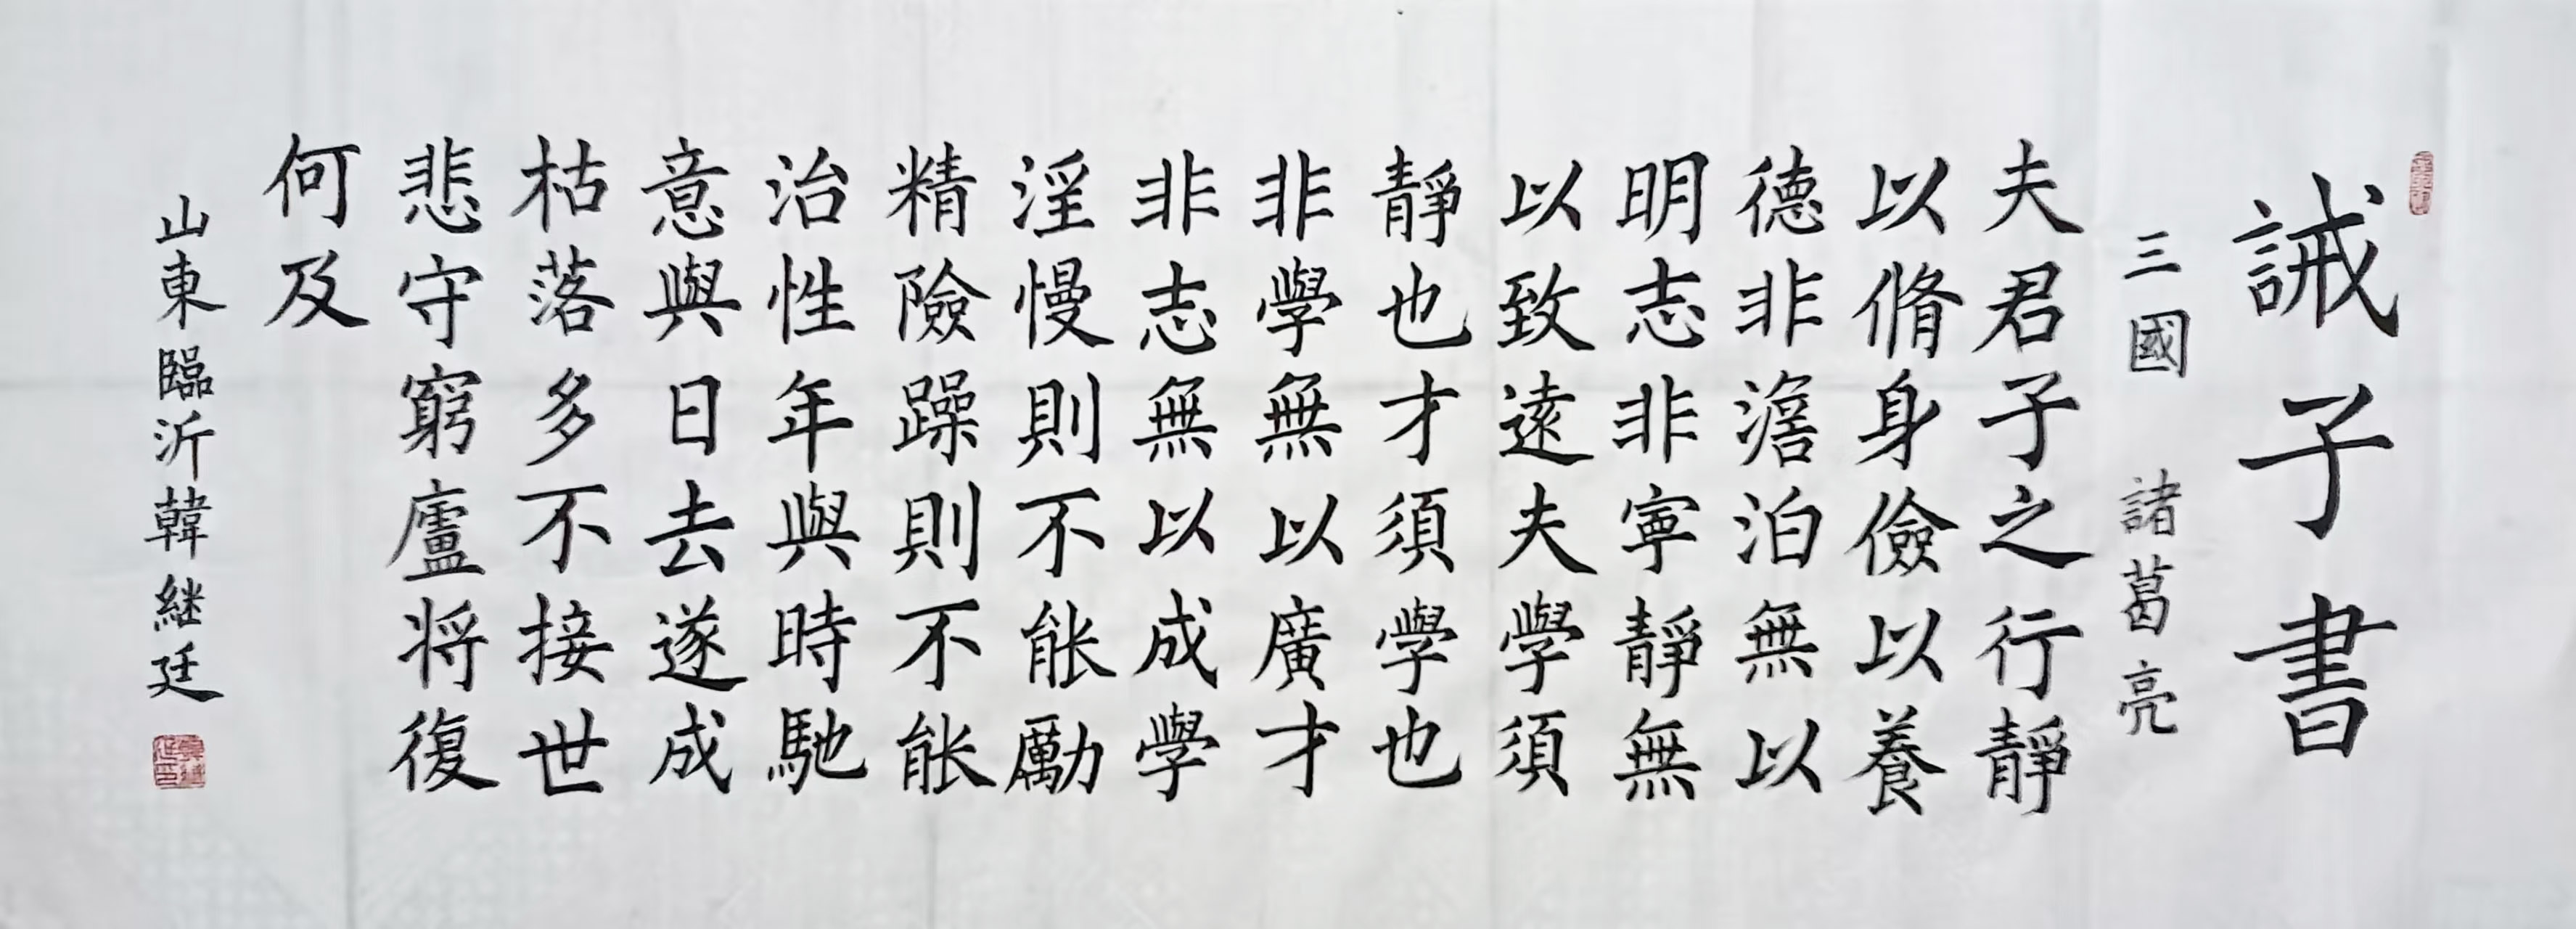 誡子書
三國 諸葛亮
夫君子之行靜
以脩身儉以養
德非澹泊無以
明志非寧靜無
以致遠夫學須
靜也才須學也
非學無以廣才
非志無以成學
淫慢則不能勵
精險躁則不能
治性年與時馳
意與日去遂成
枯落多不接世
悲守窮廬将復
何及
山東臨沂韓継廷